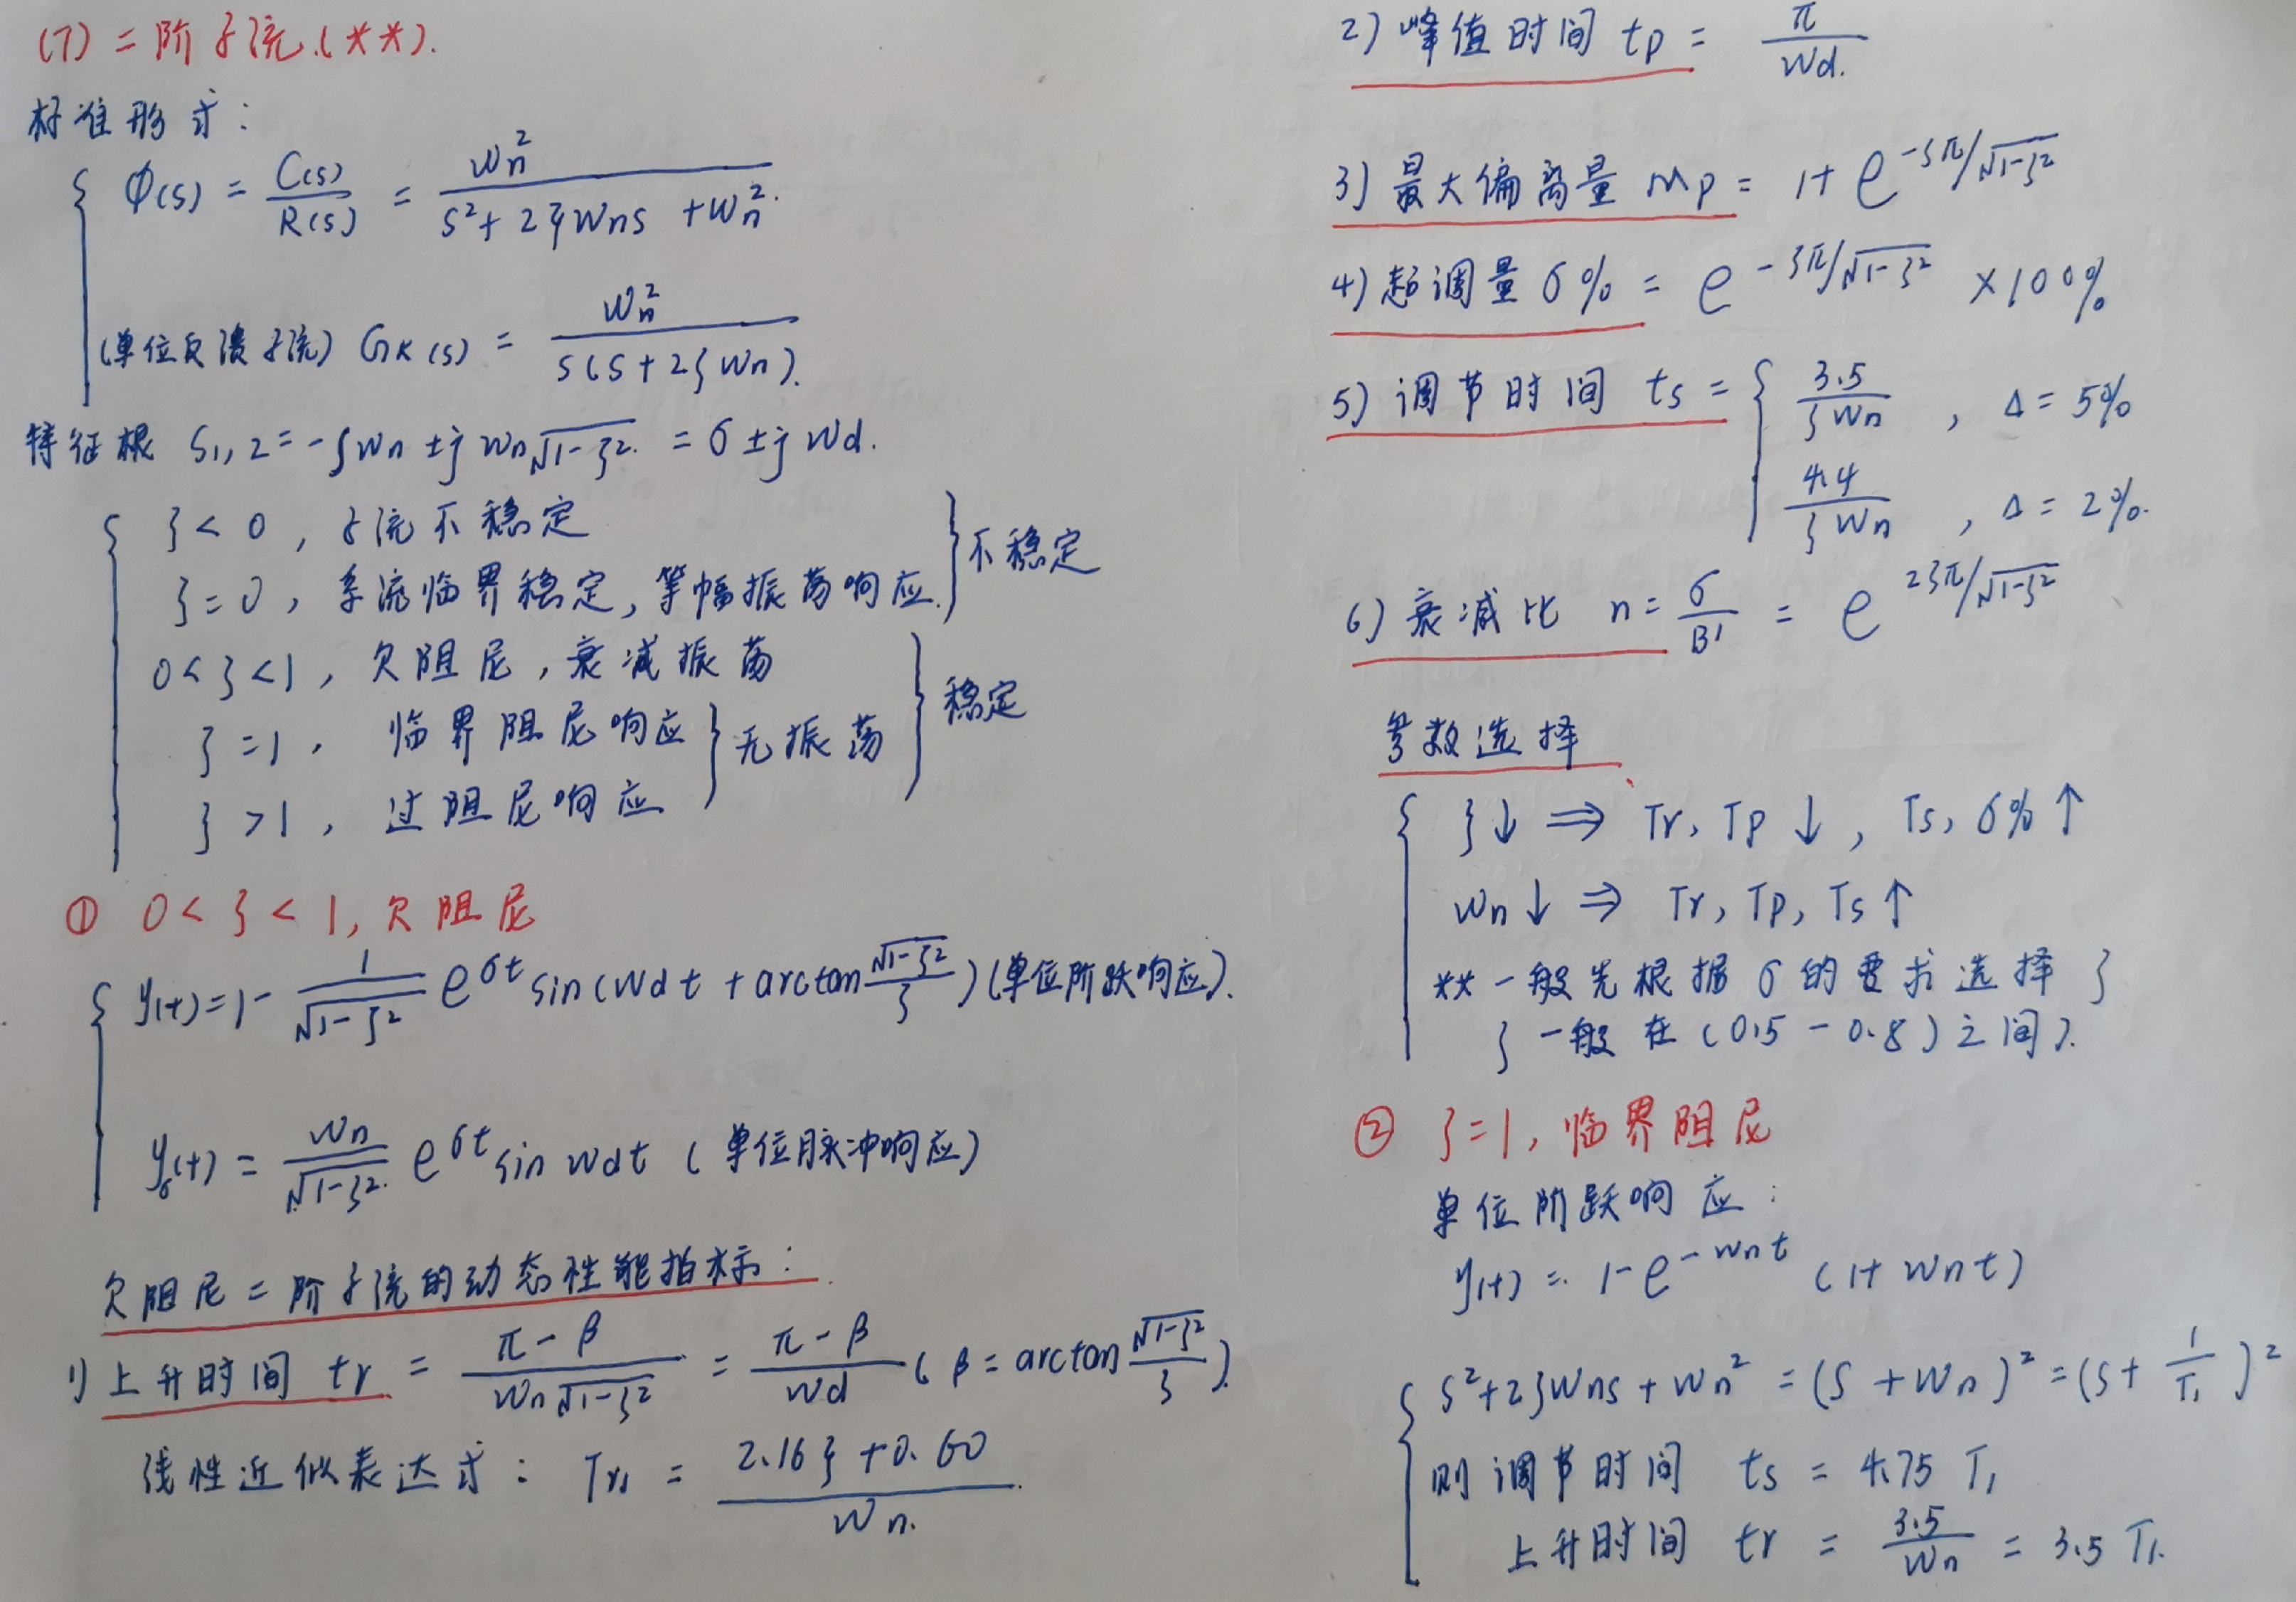 (7) 二阶系统.(**).
标准形式:
Φ(s) = C(s)/R(s) = ωn²/(s²+2ζωns+ωn²).
(单位反馈系统) GK(s) = ωn²/(s(s+2ζωn)).
特征根 S1,2=-ζωn±jωn√(1-ζ²) = σ±jωd.
ζ<0, 系统不稳定
ζ=0, 系统临界稳定,等幅振荡响应. } 不稳定
0<ζ<1, 欠阻尼,衰减振荡
ζ=1, 临界阻尼响应 } 无振荡 } 稳定
ζ>1, 过阻尼响应
① 0<ζ<1, 欠阻尼
y(t)=1- 1/√(1-ζ²) e^σt sin(ωdt+arctan √(1-ζ²)/ζ)(单位阶跃响应).
yδ(t) = ωn/√(1-ζ²) e^σt sin ωdt (单位脉冲响应)
欠阻尼二阶系统的动态性能指标:
1) 上升时间 tr = (π-β)/(ωn√(1-ζ²)) = (π-β)/ωd (β=arctan √(1-ζ²)/ζ).
线性近似表达式: Tr1 = (2.16ζ+0.60)/ωn.
2) 峰值时间 tp = π/ωd.
3) 最大偏离量 Mp = 1+e^(-ζπ/√(1-ζ²))
4) 超调量 σ% = e^(-ζπ/√(1-ζ²)) ×100%
5) 调节时间 ts = { 3.5/(ζωn), Δ=5%
4.4/(ζωn), Δ=2%.
6) 衰减比 n = σ/B' = e^(2ζπ/√(1-ζ²))
参数选择
ζ↓ ⇒ Tr, Tp↓, Ts, σ%↑
ωn↓ ⇒ Tr, Tp, Ts↑
** 一般先根据σ的要求选择ζ
ζ一般在(0.5-0.8)之间).
② ζ=1, 临界阻尼
单位阶跃响应:
y(t) = 1-e^(-ωnt) (1+ωnt)
s²+2ζωns+ωn² = (s+ωn)² = (s+1/T1)²
则调节时间 ts = 4.75T1
上升时间 tr = 3.5/ωn = 3.5T1.